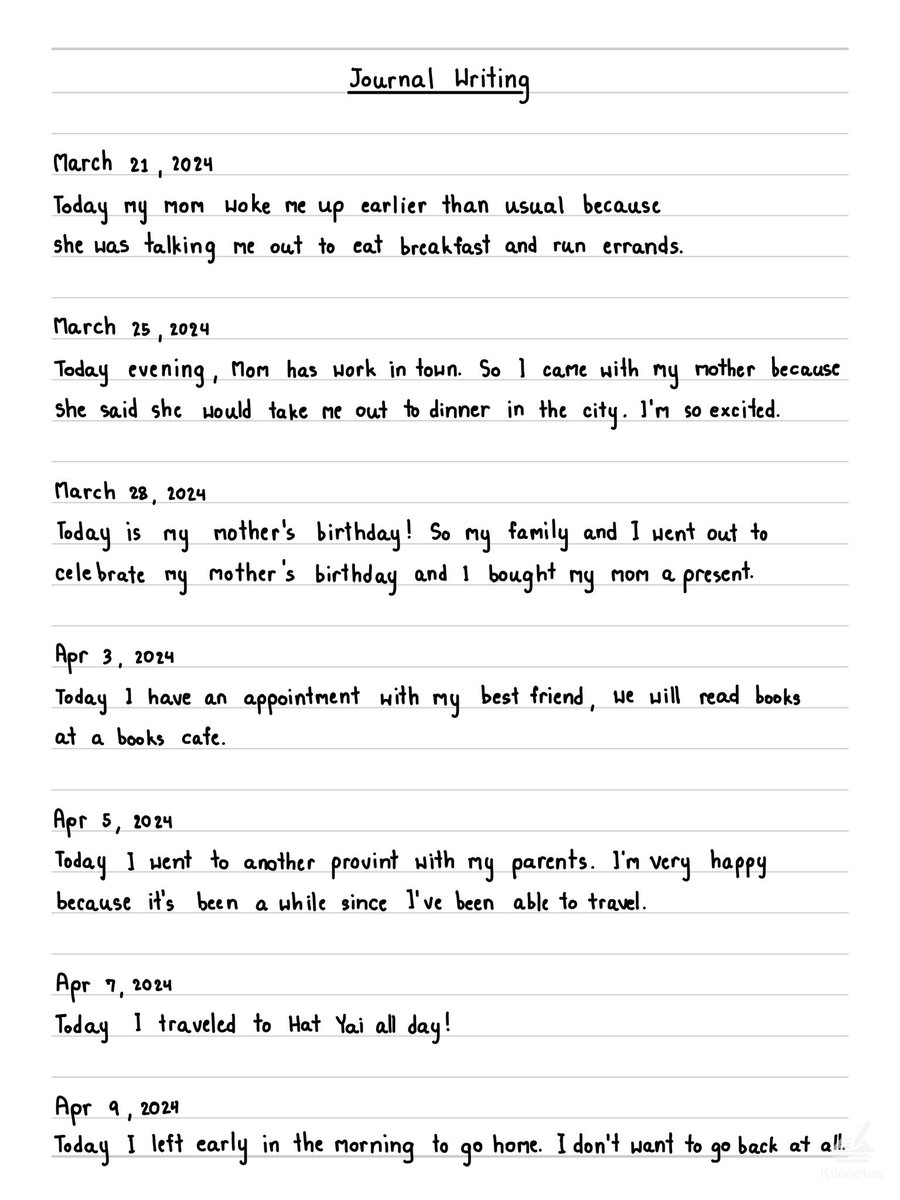 Journal Writing
March 21, 2024
Today my mom woke me up earlier than usual because
she was talking me out to eat breakfast and run errands.
March 25, 2024
Today evening, Mom has work in town. So I came with my mother because
she said she would take me out to dinner in the city. I'm so excited.
March 28, 2024
Today is my mother's birthday! So my family and I went out to
celebrate my mother's birthday and I bought my mom a present.
Apr 3, 2024
Today I have an appointment with my best friend, we will read books
at a books cafe.
Apr 5, 2024
Today I went to another provint with my parents. I'm very happy
because it's been a while since I've been able to travel.
Apr 7, 2024
Today I traveled to Hat Yai all day!
Apr 9, 2024
Today I left early in the morning to go home. I don't want to go back at all.
Kilonotes